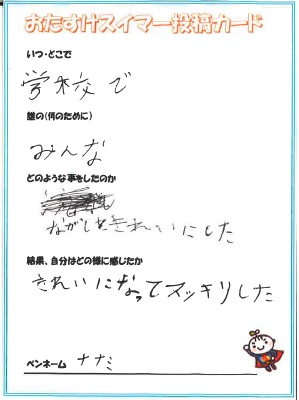 おたすけスイマー投稿カード
いつ・どこで
学校で
誰の(何のために)
みんな
どのような事をしたのか
ながしをきれいにした
結果、自分はどの様に感じたか
きれいになってスッキリした
ペンネーム ナナミ